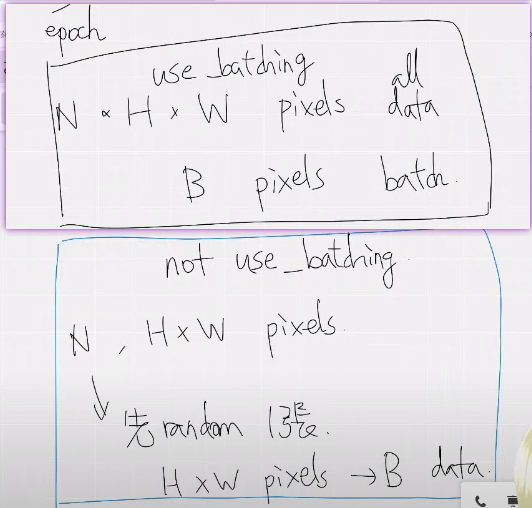 epoch
use_batching all
N × H × W pixels data
B pixels batch.
not use_batching.
N, H × W pixels.
先 random 1張.
H × W pixels → B data.